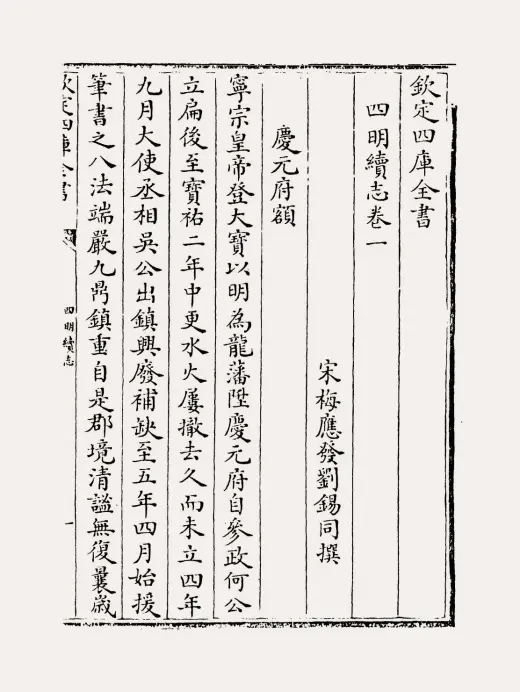 欽定四庫全書
四明續志卷一
宋梅應發劉錫同撰
慶元府額
寧宗皇帝登大寶以明為龍藩陞慶元府自參政何公
立扁後至寶祐二年中更水火屢撤去久而未立四年
九月大使丞相吳公出鎮興廢補缺至五年四月始援
筆書之八法端嚴九鼎鎮重自是郡境清謐無復曩歳
欽定四庫全書
四明續志
一